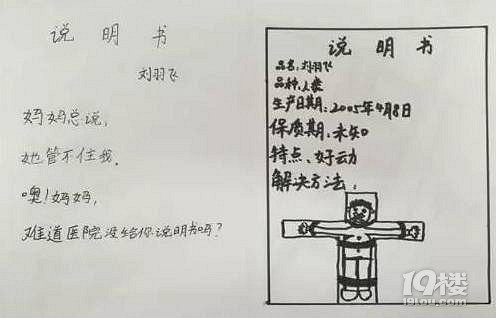 说明书
刘羽飞
妈妈总说，
她管不住我。
噢！妈妈，
难道医院没给你说明书吗？
说明书
品名：刘羽飞
品种：人类
生产日期：2005年4月8日
保质期：未知
特点：好动
解决方法：
19楼
19lou.com